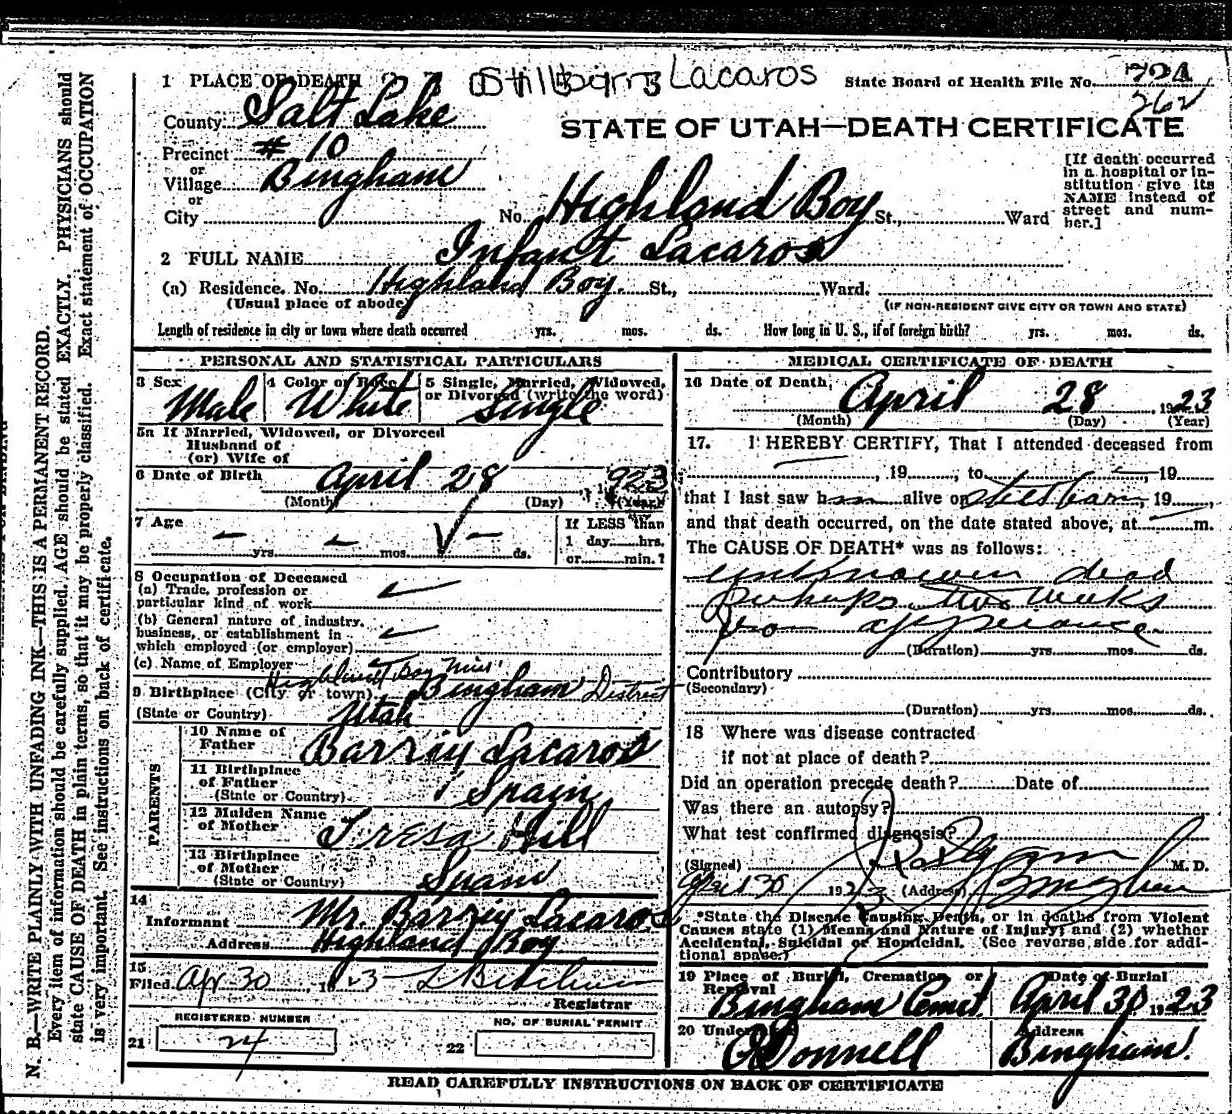 1 PLACE OF DEATH Stillborn Lacaros State Board of Health File No. 724
262
County Salt Lake
STATE OF UTAH—DEATH CERTIFICATE
Precinct # 10
or
Village Bingham
or
City No. Highland Boy St., Ward
[If death occurred
in a hospital or in-
stitution give its
NAME instead of
street and num-
ber.]
2 FULL NAME Infant Lacaros
(a) Residence. No. Highland Boy. St., Ward.
(Usual place of abode) (IF NON-RESIDENT GIVE CITY OR TOWN AND STATE)
Length of residence in city or town where death occurred yrs. mos. ds. How long in U. S., if of foreign birth? yrs. mos. ds.
PERSONAL AND STATISTICAL PARTICULARS
3 Sex 4 Color or Race 5 Single, Married, Widowed,
or Divorced (write the word)
Male White Single
5a If Married, Widowed, or Divorced
Husband of
(or) Wife of
6 Date of Birth April 28 1923
(Month) (Day) (Year)
7 Age If LESS than
1 day hrs.
yrs. mos. ds. or min.?
8 Occupation of Deceased
(a) Trade, profession or
particular kind of work
(b) General nature of industry,
business, or establishment in
which employed (or employer)
(c) Name of Employer
Highland Boy
9 Birthplace (City or town) Bingham District
(State or Country) Utah
PARENTS
10 Name of
Father Barziy Lacaros
11 Birthplace
of Father
(State or Country) Spain
12 Maiden Name
of Mother Tresa Hill
13 Birthplace
of Mother
(State or Country) Spain
14
Informant Mr. Barziy Lacaros
Address Highland Boy
15
Filed Apr 30 1923
Registrar
REGISTERED NUMBER NO. OF BURIAL PERMIT
21 24 22
MEDICAL CERTIFICATE OF DEATH
16 Date of Death, April 28 1923
(Month) (Day) (Year)
17. I HEREBY CERTIFY, That I attended deceased from
, 19 , to , 19
that I last saw h alive on still born, 19 ,
and that death occurred, on the date stated above, at m.
The CAUSE OF DEATH* was as follows:
unknown dead
perhaps two weeks
from appearance
(Duration) yrs. mos. ds.
Contributory
(Secondary)
(Duration) yrs. mos. ds.
18 Where was disease contracted
if not at place of death?
Did an operation precede death? Date of
Was there an autopsy?
What test confirmed diagnosis?
(Signed) M. D.
April 30 1923 (Address) Bingham
*State the Disease Causing Death, or in deaths from Violent
Causes state (1) Means and Nature of Injury; and (2) whether
Accidental, Suicidal or Homicidal. (See reverse side for addi-
tional space.)
19 Place of Burial, Cremation or Date of Burial
Removal
Bingham Cemet April 30 1923
20 Undertaker Address
O'Donnell Bingham
READ CAREFULLY INSTRUCTIONS ON BACK OF CERTIFICATE
N. B.—WRITE PLAINLY WITH UNFADING INK—THIS IS A PERMANENT RECORD.
Every item of information should be carefully supplied. AGE should be stated EXACTLY. PHYSICIANS should
state CAUSE OF DEATH in plain terms, so that it may be properly classified. Exact statement of OCCUPATION
is very important. See instructions on back of certificate.